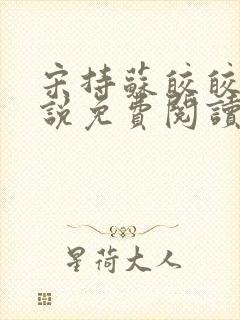 宋持蘇皎皎
說免費閱讀
星荷大人